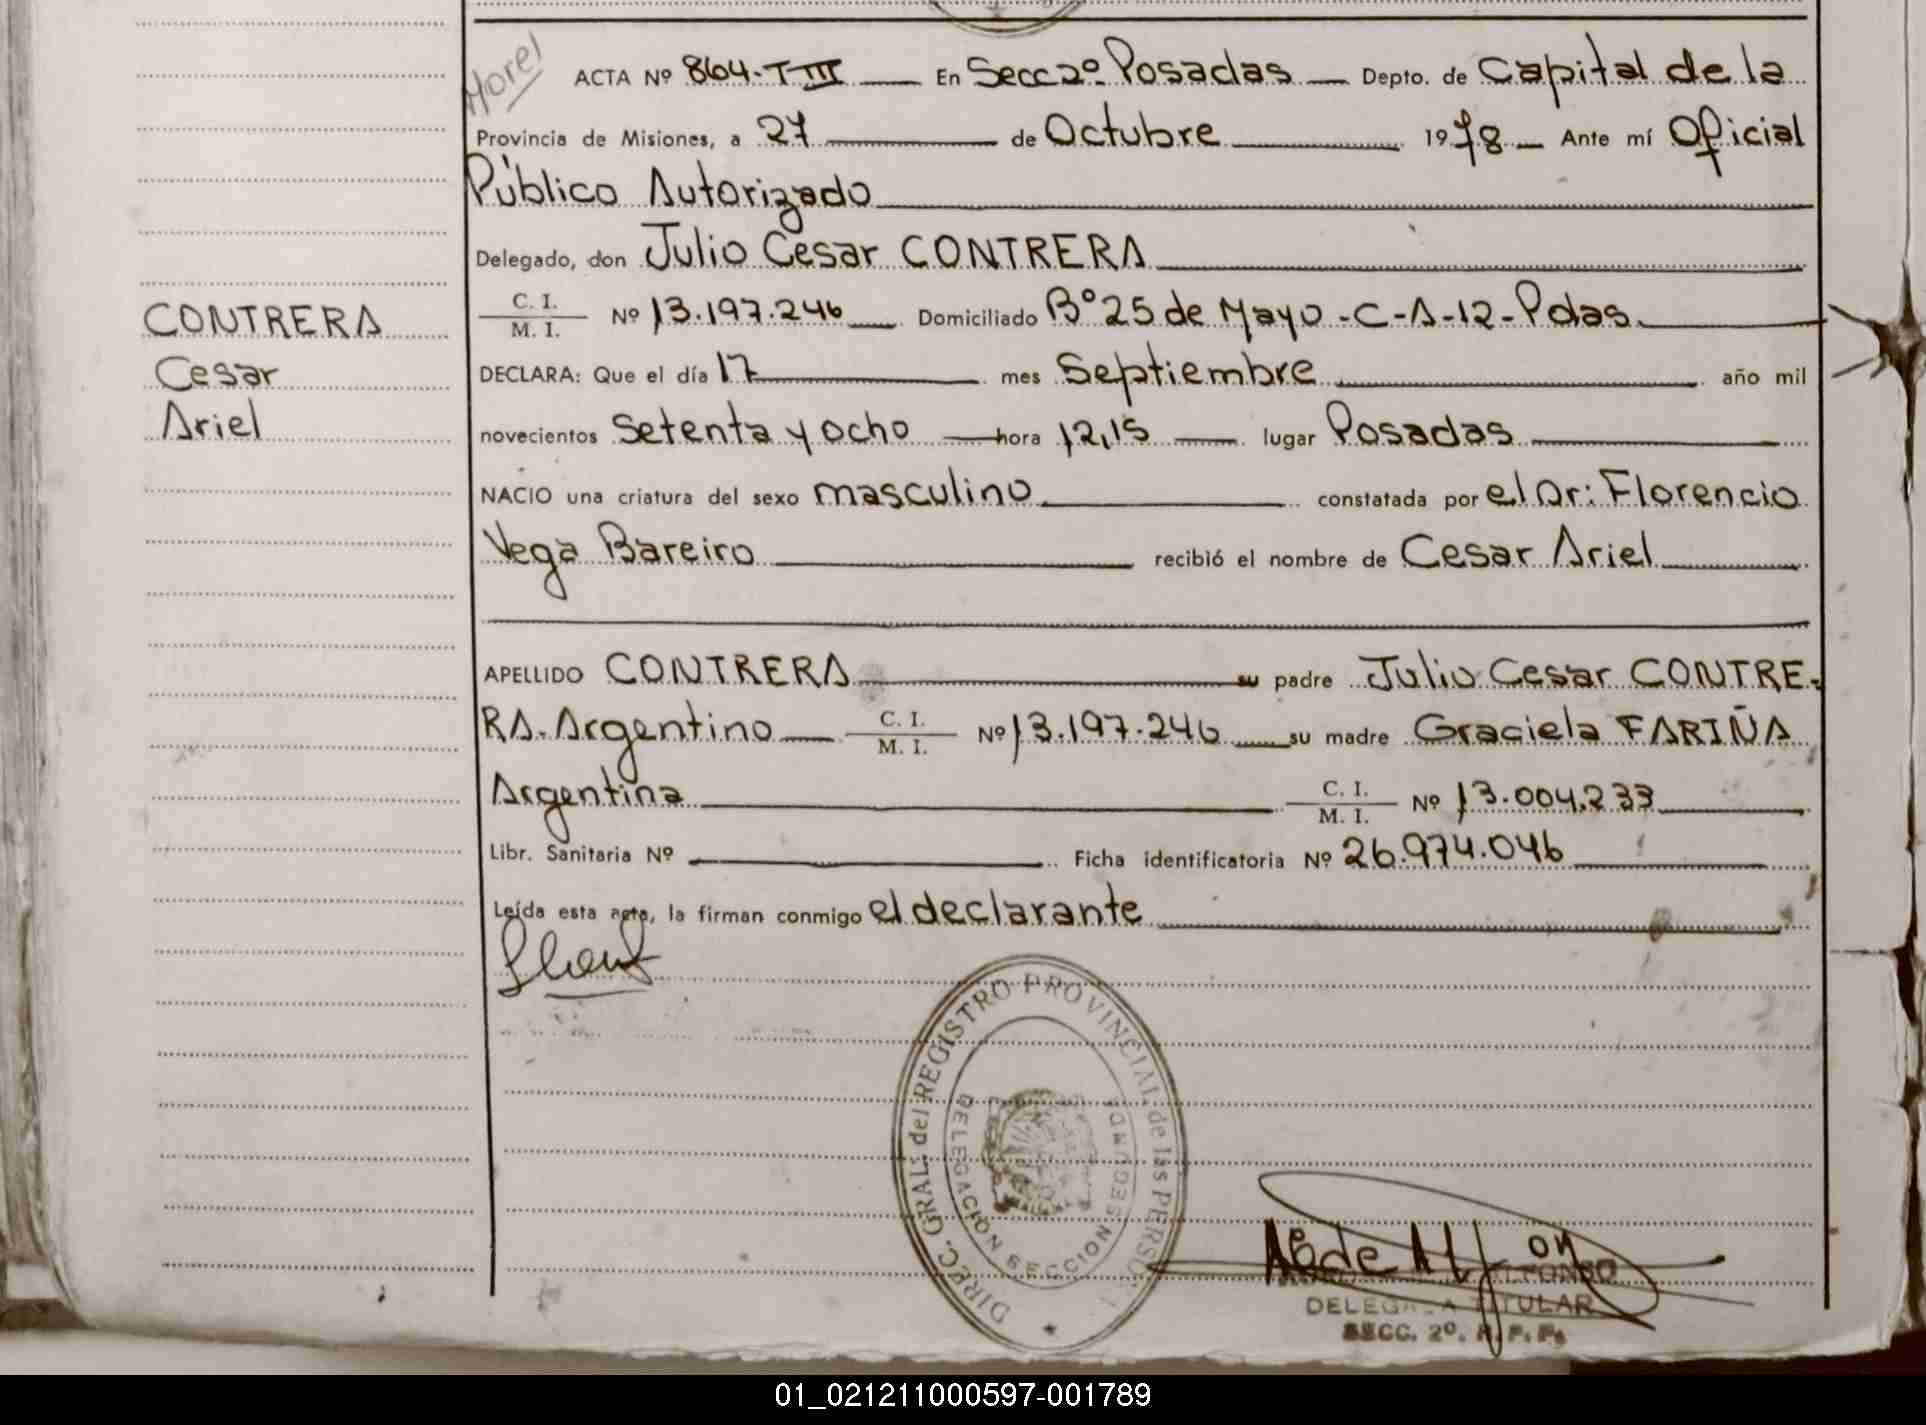 Morel
ACTA Nº 864-T III En Secc 2º Posadas Depto. de Capital de la
Provincia de Misiones, a 27 de Octubre 1978 Ante mí Oficial
Público Autorizado
Delegado, don Julio Cesar CONTRERA
C. I.
M. I. Nº 13.197.246 Domiciliado Bº 25 de Mayo - C - A - 12 - Pdas.
CONTRERA
Cesar
Ariel
DECLARA: Que el día 17 mes Septiembre año mil
novecientos Setenta y ocho hora 12,15 lugar Posadas
NACIO una criatura del sexo masculino constatada por el Dr: Florencio
Vega Bareiro recibió el nombre de Cesar Ariel
APELLIDO CONTRERA su padre Julio Cesar CONTRE-
RA. Argentino C. I. M. I. Nº 13.197.246 su madre Graciela FARIÑA
Argentina C. I. M. I. Nº 13.004.233
Libr. Sanitaria Nº Ficha identificatoria Nº 26.974.046
Leída esta acta, la firman conmigo el declarante
DIREC. GRAL. del REGISTRO PROVINCIAL de las PERSONAS
DELEGACION SECCION SEGUNDA
DELEGADA TITULAR
SECC. 2º. R. P. P.
01_021211000597-001789